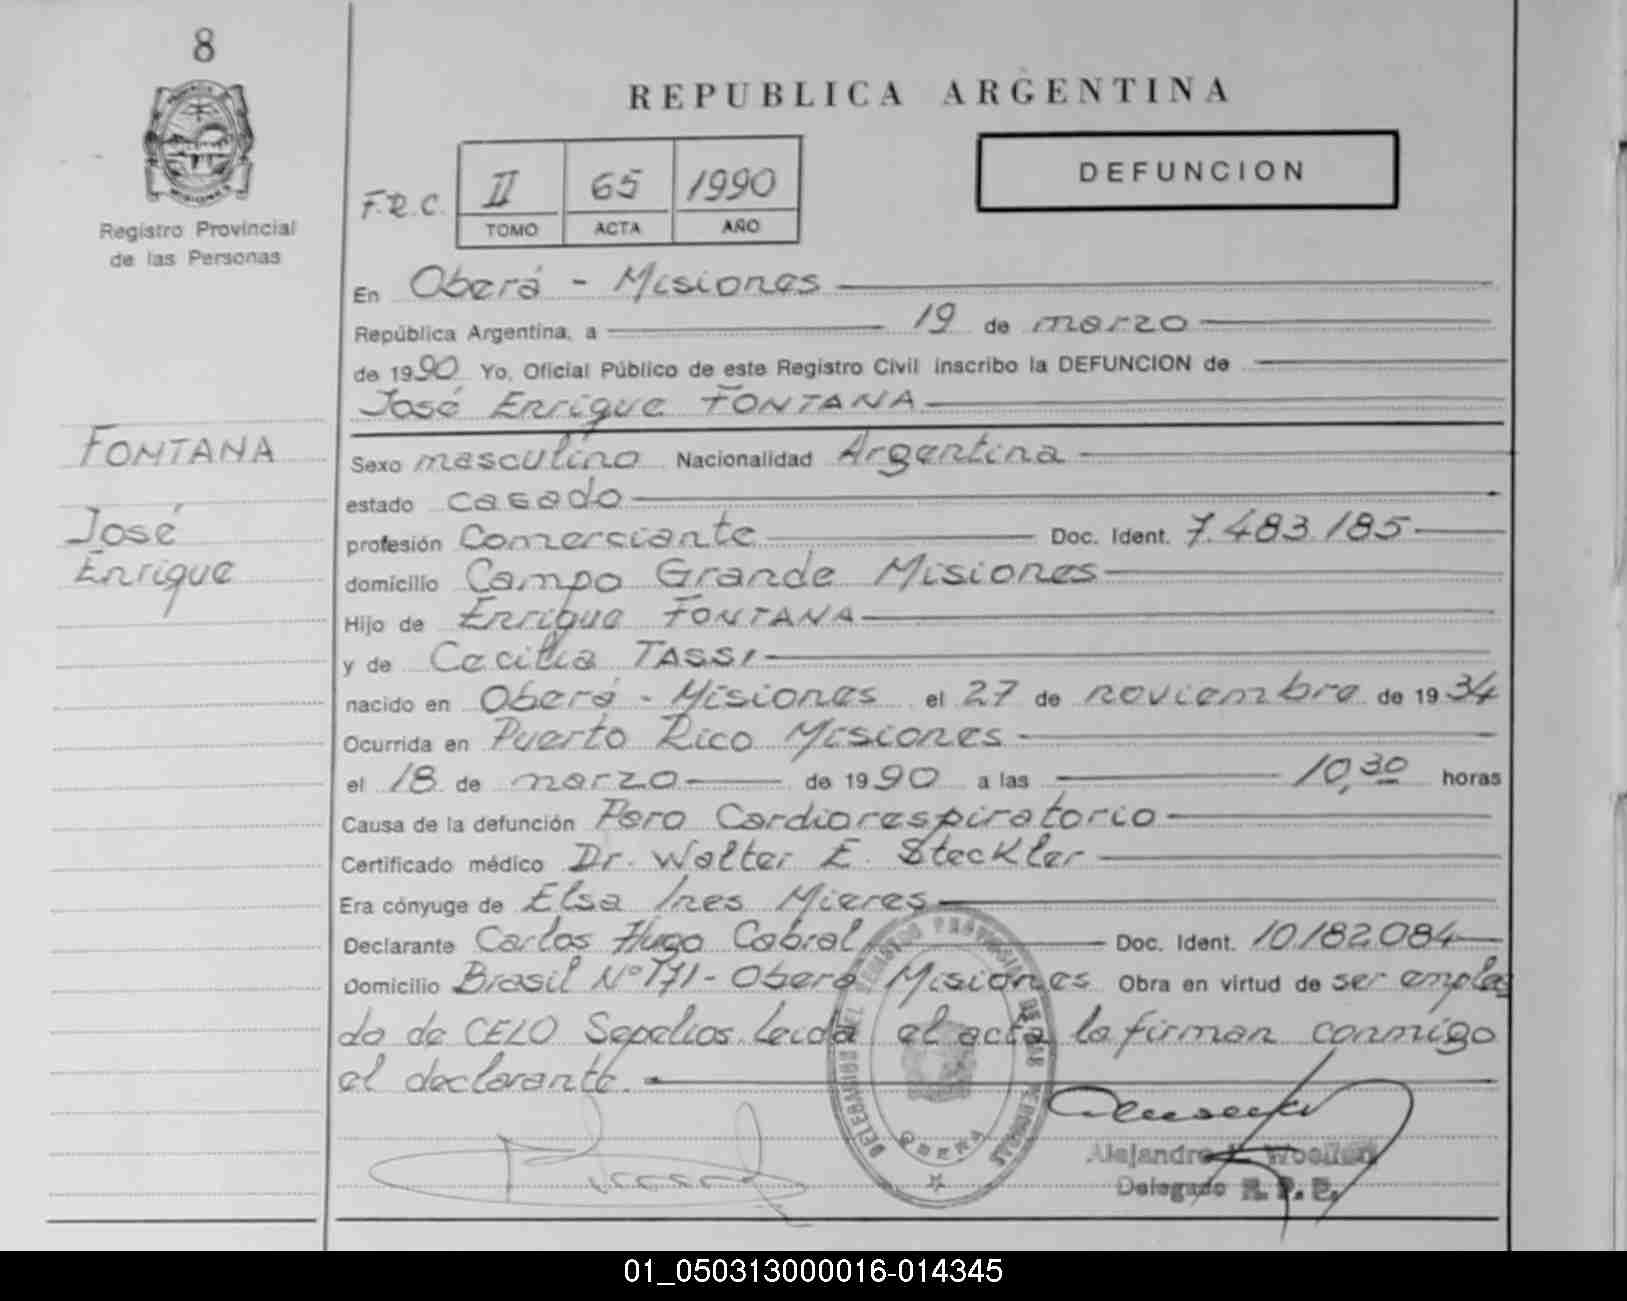 8
REPUBLICA ARGENTINA
DEFUNCION
Registro Provincial
de las Personas
F.R.C. II 65 1990
TOMO ACTA AÑO
En Oberá - Misiones
República Argentina, a 19 de marzo
de 1990 Yo, Oficial Público de este Registro Civil inscribo la DEFUNCION de
José Enrique FONTANA
FONTANA
José
Enrique
Sexo masculino Nacionalidad Argentina
estado casado
profesión Comerciante Doc. Ident. 7.483.185
domicilio Campo Grande Misiones
Hijo de Enrique FONTANA
y de Cecilia TASSI
nacido en Oberá - Misiones el 27 de noviembre de 1934
Ocurrida en Puerto Rico Misiones
el 18 de marzo de 1990 a las 10,30 horas
Causa de la defunción Paro Cardiorespiratorio
Certificado médico Dr. Walter E. Steckler
Era cónyuge de Elsa Ines Mieres
Declarante Carlos Hugo Cabral Doc. Ident. 10182084
Domicilio Brasil Nº 171 - Oberá Misiones Obra en virtud de ser emplea
do de CELO Sepelios. Leida el acta la firman conmigo
el declarante.
DELEGACION DEL REGISTRO PROVINCIAL DE LAS PERSONAS
OBERA
Alejandro
Delegado R. P. P.
01_050313000016-014345